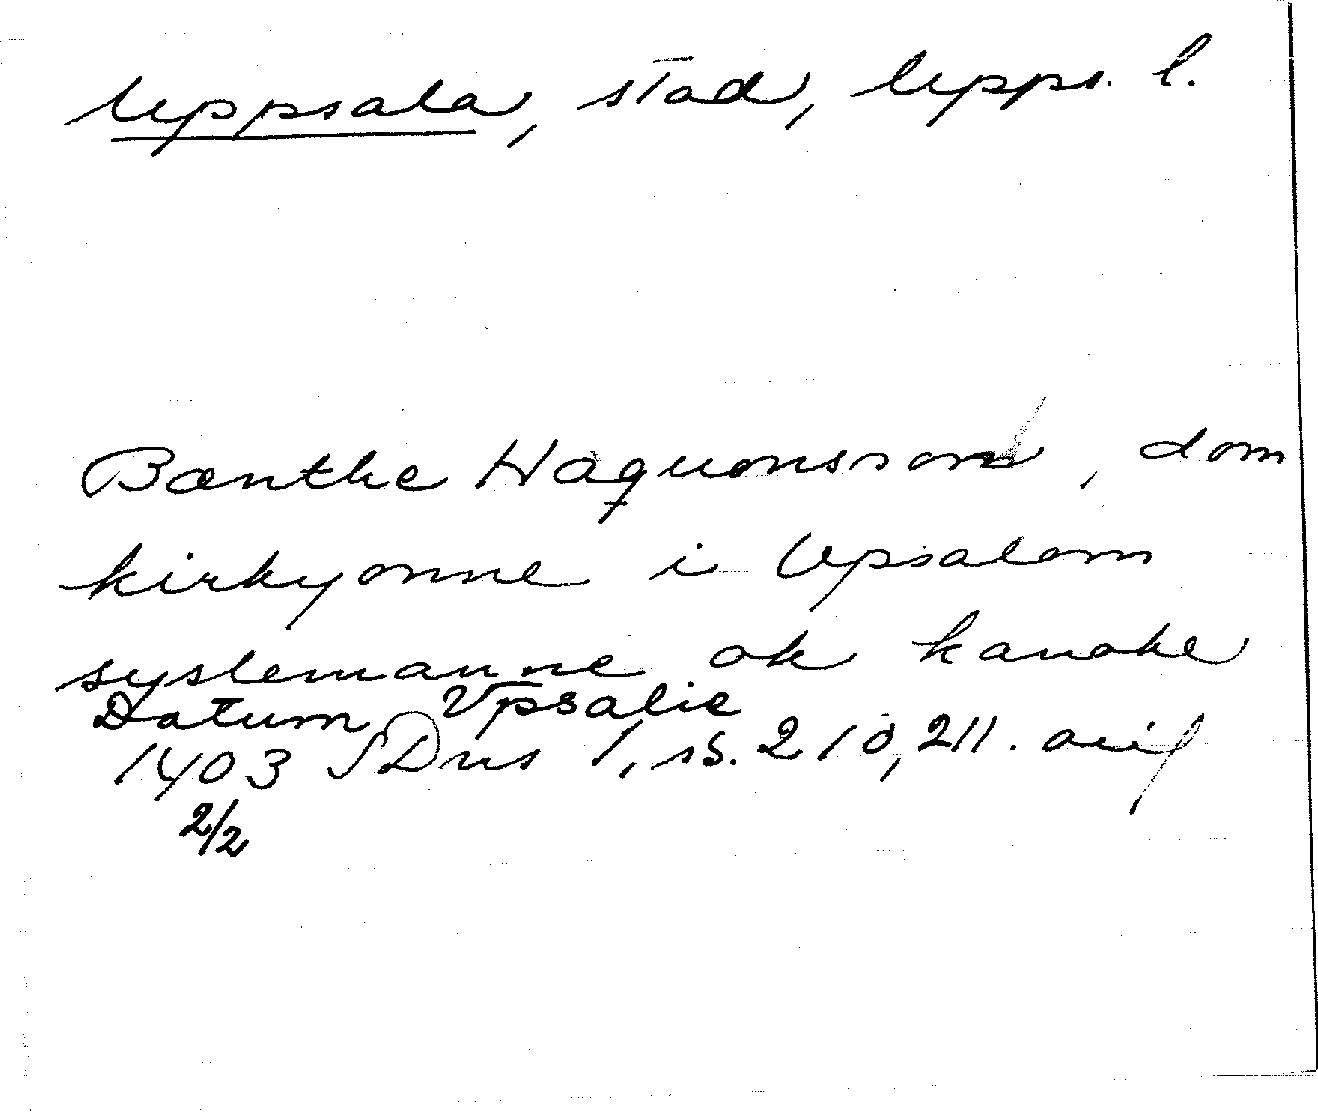 Uppsala, stad, Upps. l.
Bænthe Haquonsson, dom
kirkyonne i Upsalom
syslemanne ok kanoke
Datum Vpsalie
1403 SDns 1, ss. 210, 211.
2/2